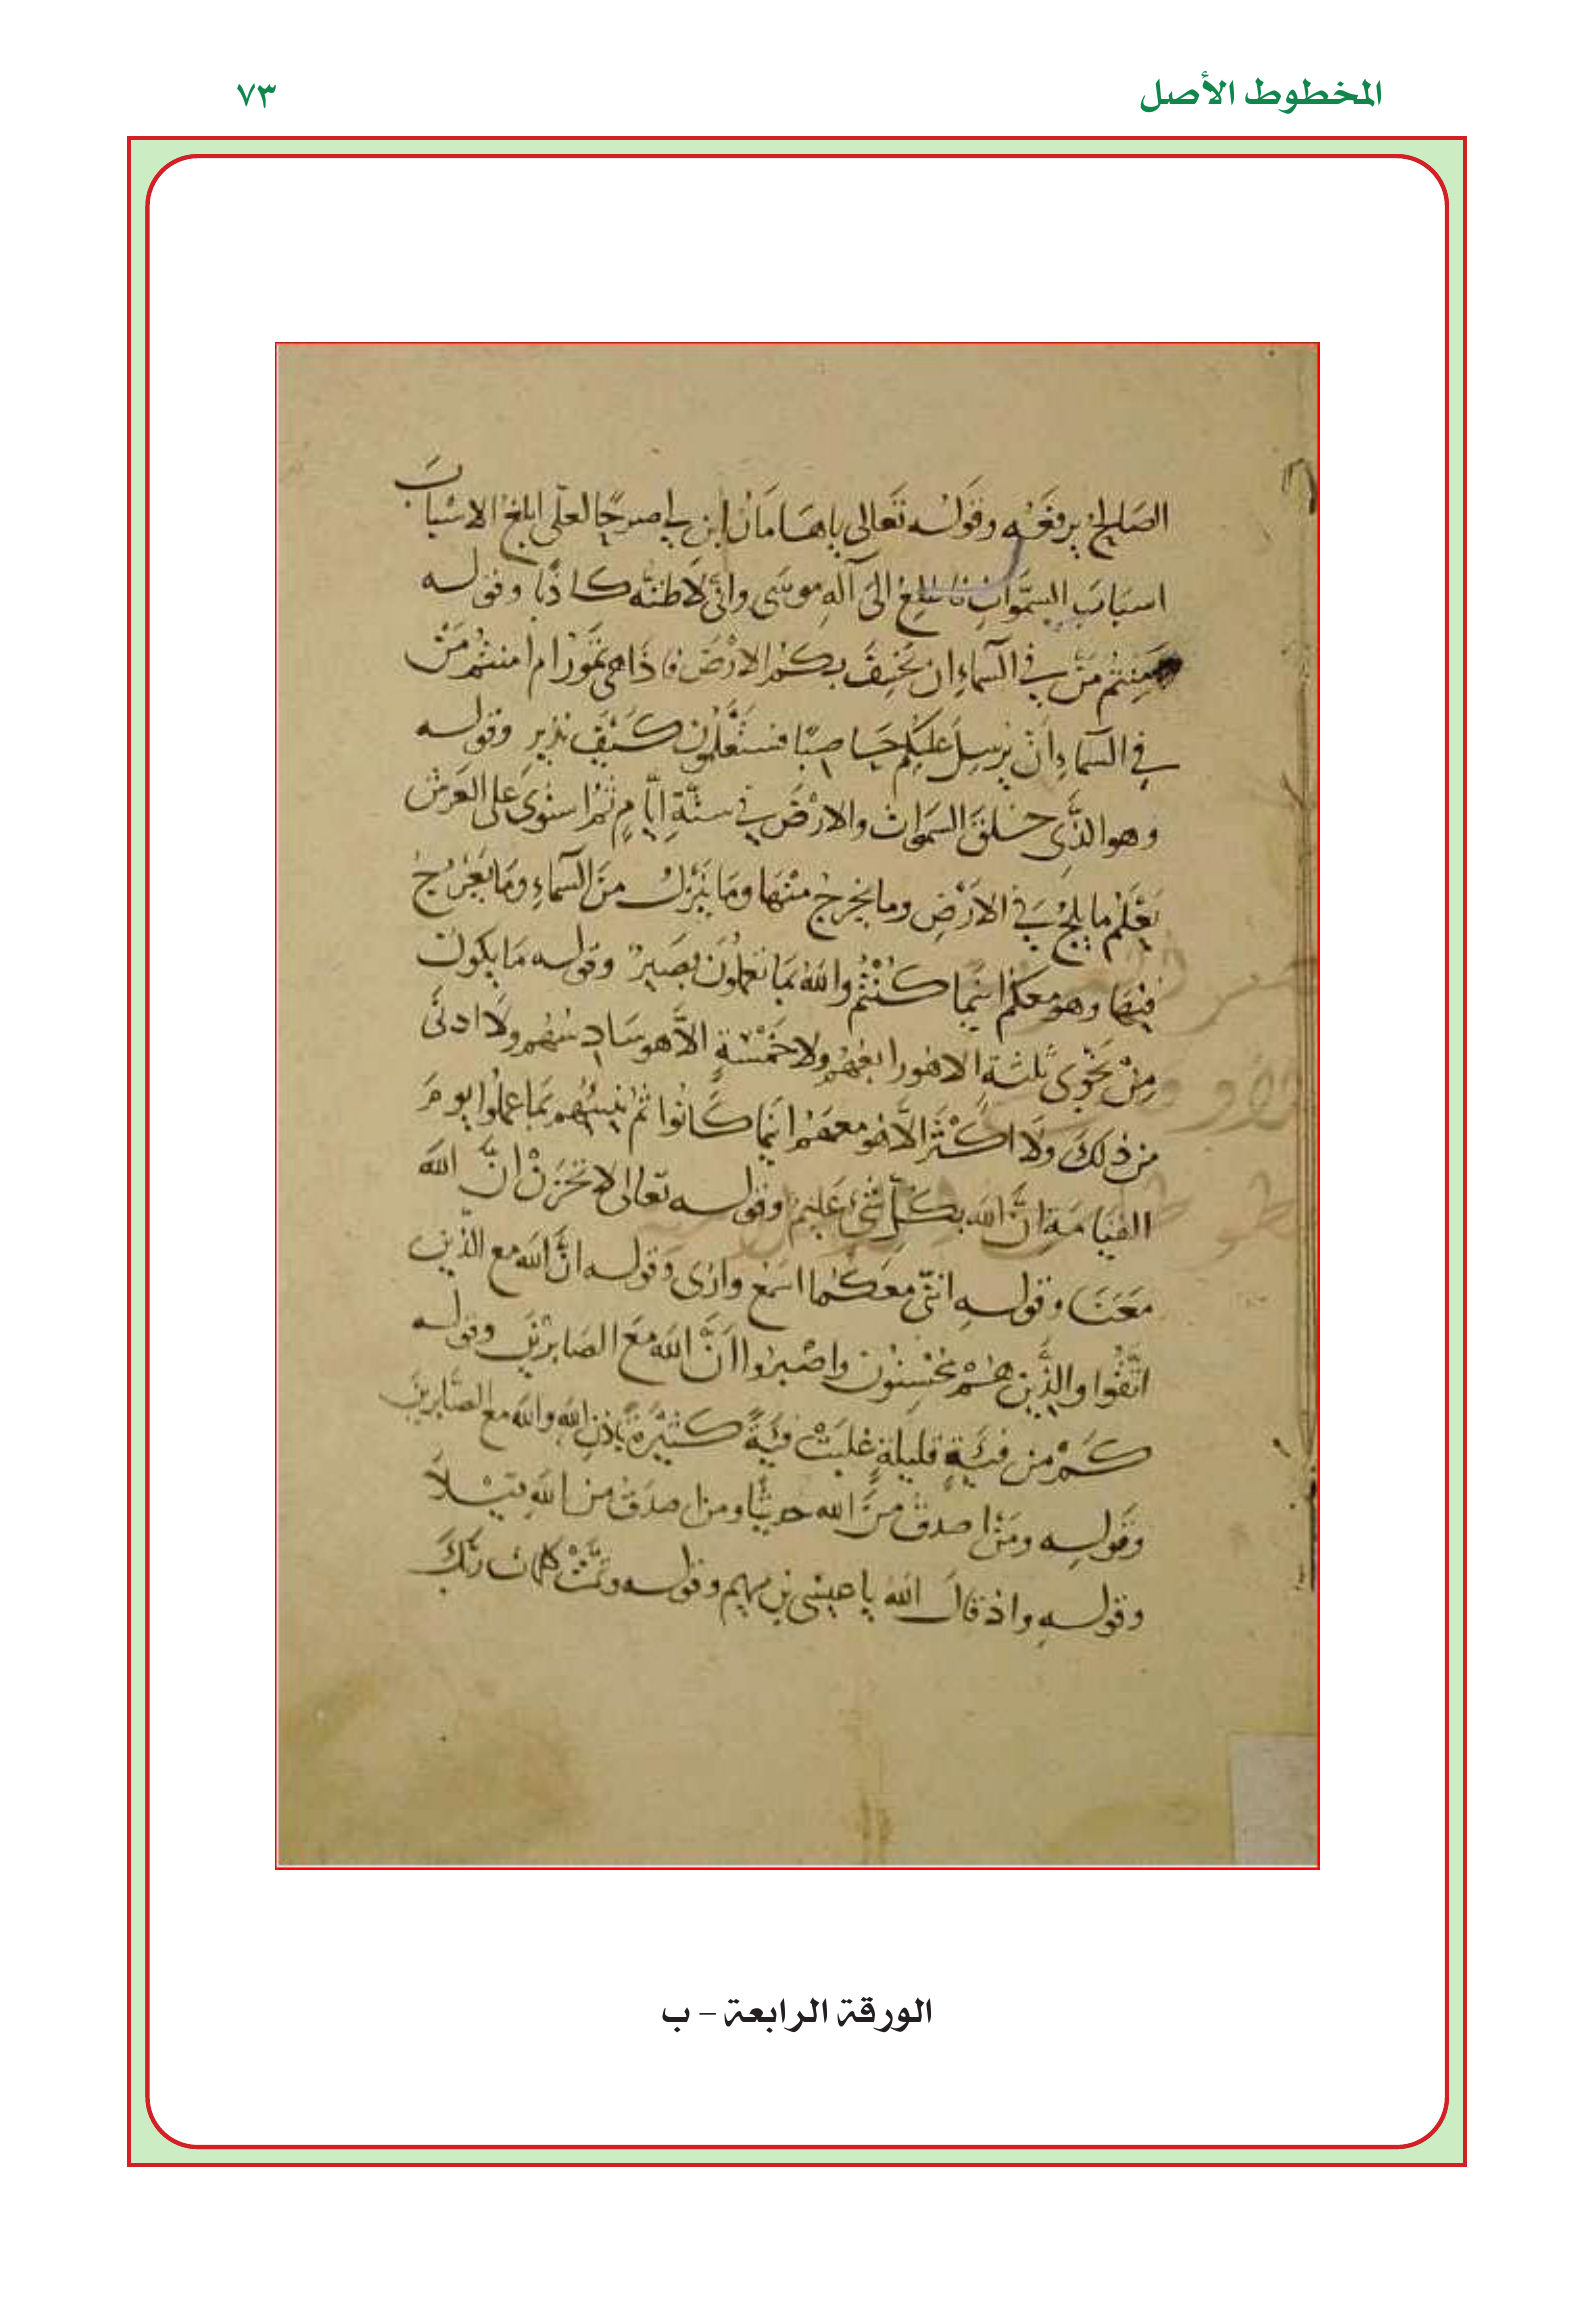 المخطوط الأصل
٧٣
الصَالح يرفعُه وقولُه تَعَالى ياهَامَانُ ابن لي صرحًا لعلّي ابلغُ الاسْبابَ
اسبَابَ السمَّوَاتِ فاطلعَ الىَ آلهِ موسَى وانّي لاَظنهُّ كاذبًا وقوله
أمِنتُم مَنْ في السَّماءِ ان يَخْسِفَ بكمُ الارْضَ فاذَا هي تمَوُرُ ام امنتُم مَنْ
في السَّماءِ أَنْ يُرسِلَ عليكمْ حَاصِبًا فستَعْلَمُونَ كَيْفَ نذيرِ وقوله
وهو الذَّي خلقَ السَموات والارْضَ في ستَّةِ ايَّامٍ ثمُ استوىَ على العَرشِ
يَعْلَمُ ما يلجُ فيِ الاَرْضِ وما يخرجُ مِنْهَا ومَا يَنْزلُ منَ السَّماءِ ومَا يَعْرُجُ
فيْهَا وهو معكمُ اينَما كُنْتُمْ واللهُ بمَا تعملُونَ بصَيرُ وقوله مَا يكونُ
مِنْ نَجْوىَ ثلثةِ الا هُو رابعُهمْ ولا خَمْسَةٍ الاَّ هو سَادِسُهُم ولاَ ادنَى
من ذلكَ ولاَ اكْثَرَ الاَّ هُو معهَمُ اينَما كَانُوا ثمُ يُنبئُهم بمَا عملُوا يومَ
القيَامَةِ انَّ اللهَ بكلِّ شَيءٍ عَليمُ وقوله تعالى لا تَحْزَنْ انَّ اللهَ
مَعَنَا وقوله انّنِي معَكُما اسمَعُ وارَى وَقوله انَّ اللهَ مع الذَّينِ
اتَّقُوا والذَّين هُمْ مُحْسِنُونَ واصْبرُوا انَّ اللهَ مَعَ الصَابرْينَ وقوله
كَمْ من فئَةٍ قليلةٍ غلبَتْ فئَةً كثيْرَةً بِاذنِ اللهِ واللهُ معَ الصَّابرينَ
وقوله ومَنْ اصدقُ منَ الله حديثًا ومن اصدَقُ من اللهِ قيلاً
وقوله واذ قالَ اللهُ يا عيسَى بن مريم وقوله وتَمَّتْ كلمات ربِّكَ
الورقة الرابعة – ب